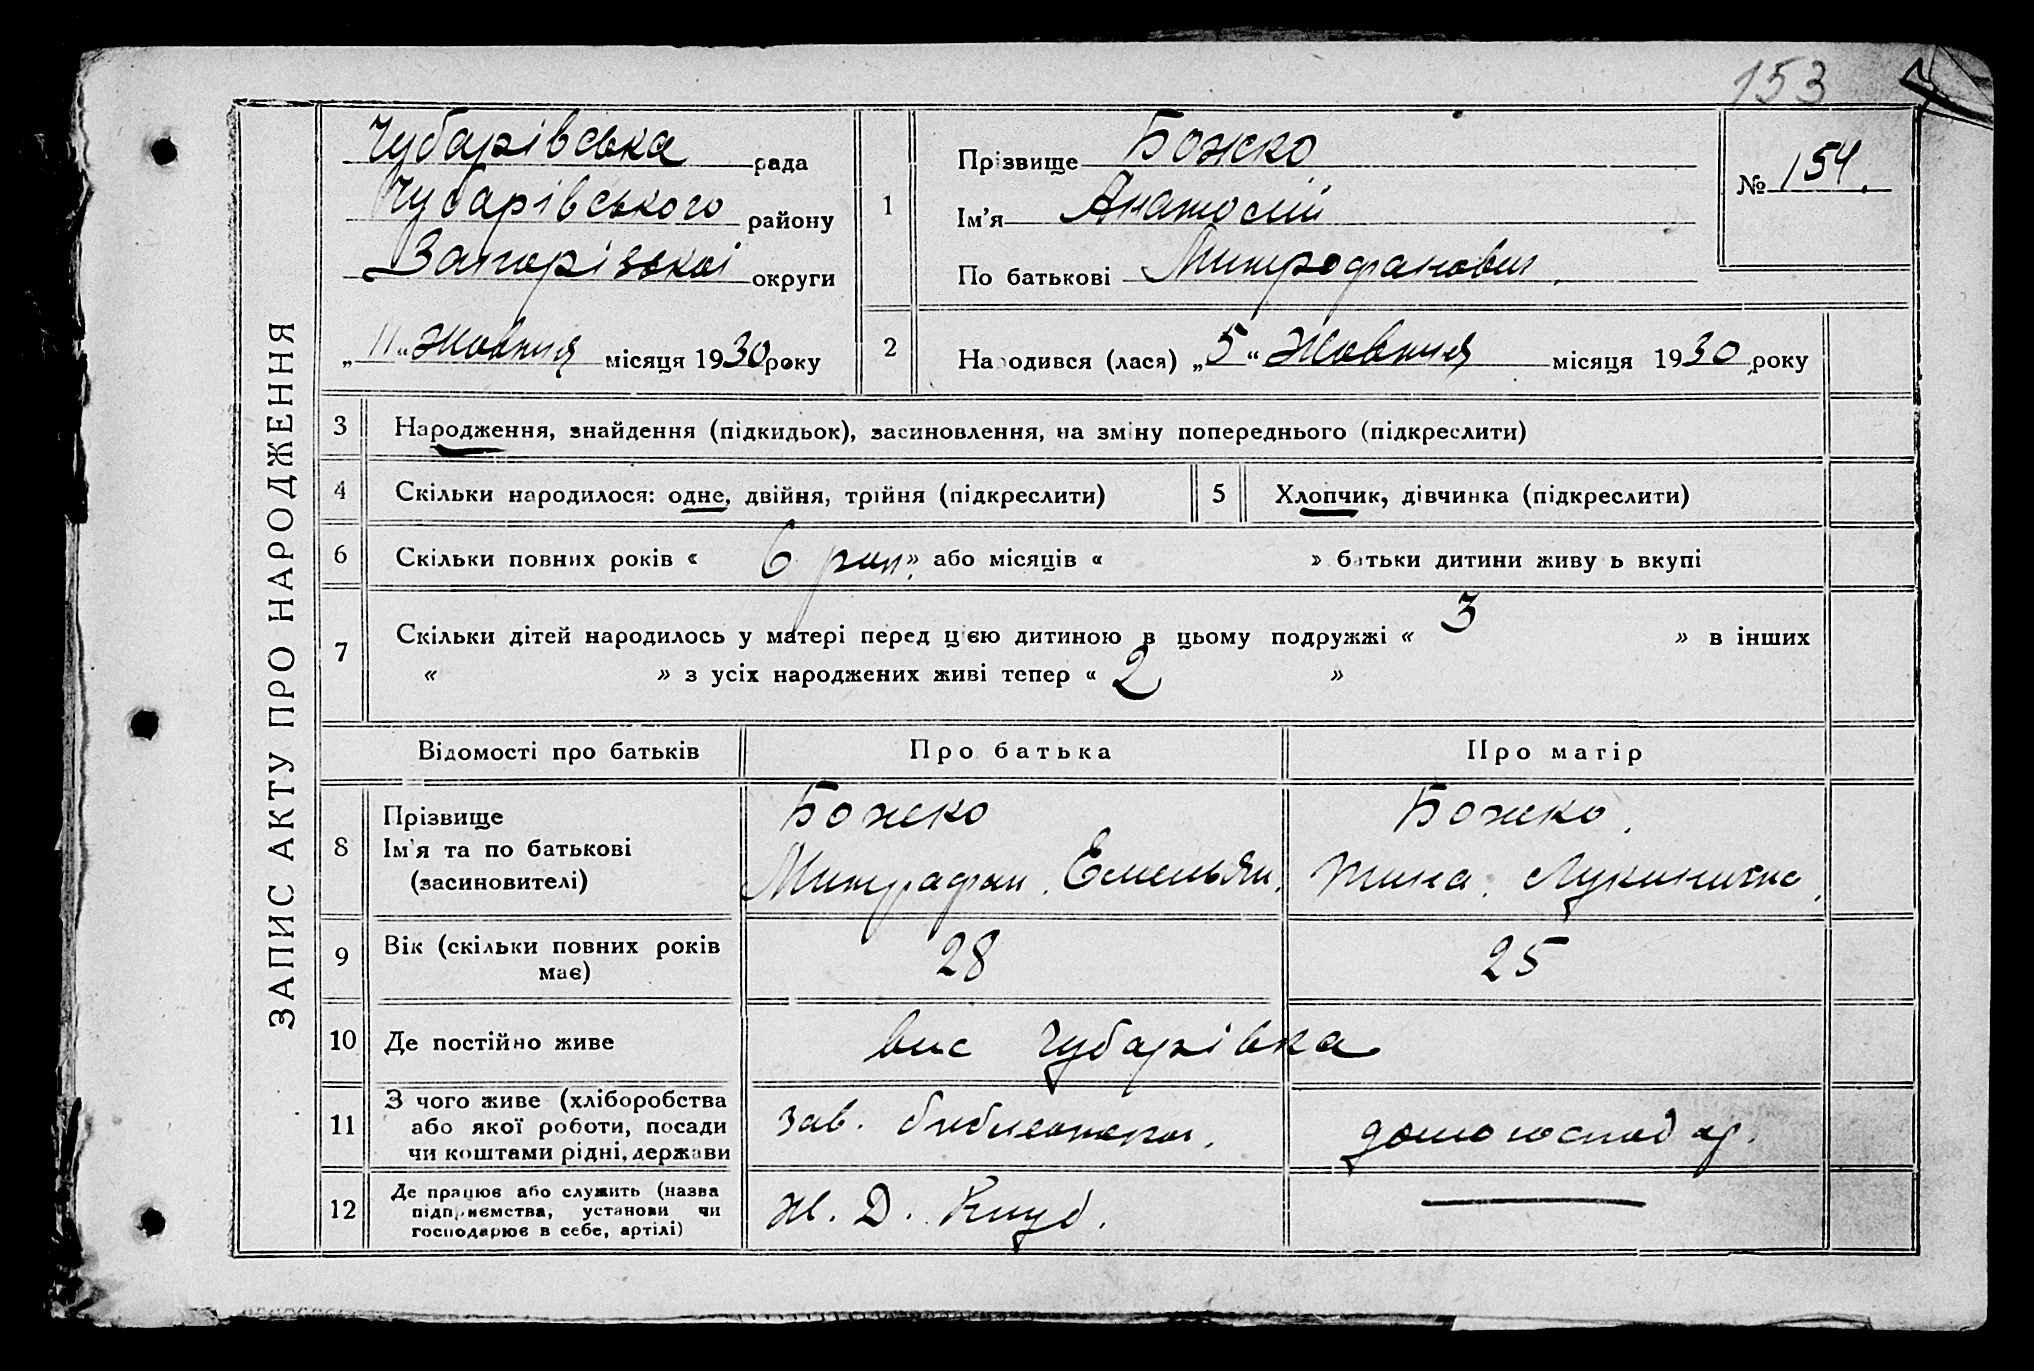 153
ЗАПИС АКТУ ПРО НАРОДЖЕННЯ
Чубарівська рада
Чубарівського району
Запорізької округи
„11“ Жовтня місяця 1930 року
1
Прізвище Божко
Ім'я Анатолій
По батькові Митрофанович
№ 154.
2
Народився (лася) „5“ Жовтня місяця 1930 року
3 Народження, знайдення (підкидьок), засиновлення, на зміну попереднього (підкреслити)
4 Скільки народилося: одне, двійня, трійня (підкреслити)
5 Хлопчик, дівчинка (підкреслити)
6 Скільки повних років « 6 рип » або місяців « » батьки дитини живуть вкупі
7 Скільки дітей народилось у матері перед цією дитиною в цьому подружжі « 3 » в інших
« » з усіх народжених живі тепер « 2 »
Відомості про батьків Про батька Про матір
8
Прізвище
Ім'я та по батькові
(засиновителі)
Божко
Митрафан Емельян.
Божко.
Тина Лукинична.
9
Вік (скільки повних років
має)
28
25
10 Де постійно живе
вис Чубарівка
11
З чого живе (хліборобства
або якої роботи, посади
чи коштами рідні, держави
зав. библиотекой.
домогосподар.
12
Де працює або служить (назва
підприємства, установи чи
господарює в себе, артілі)
Ж. Д. Клуб.